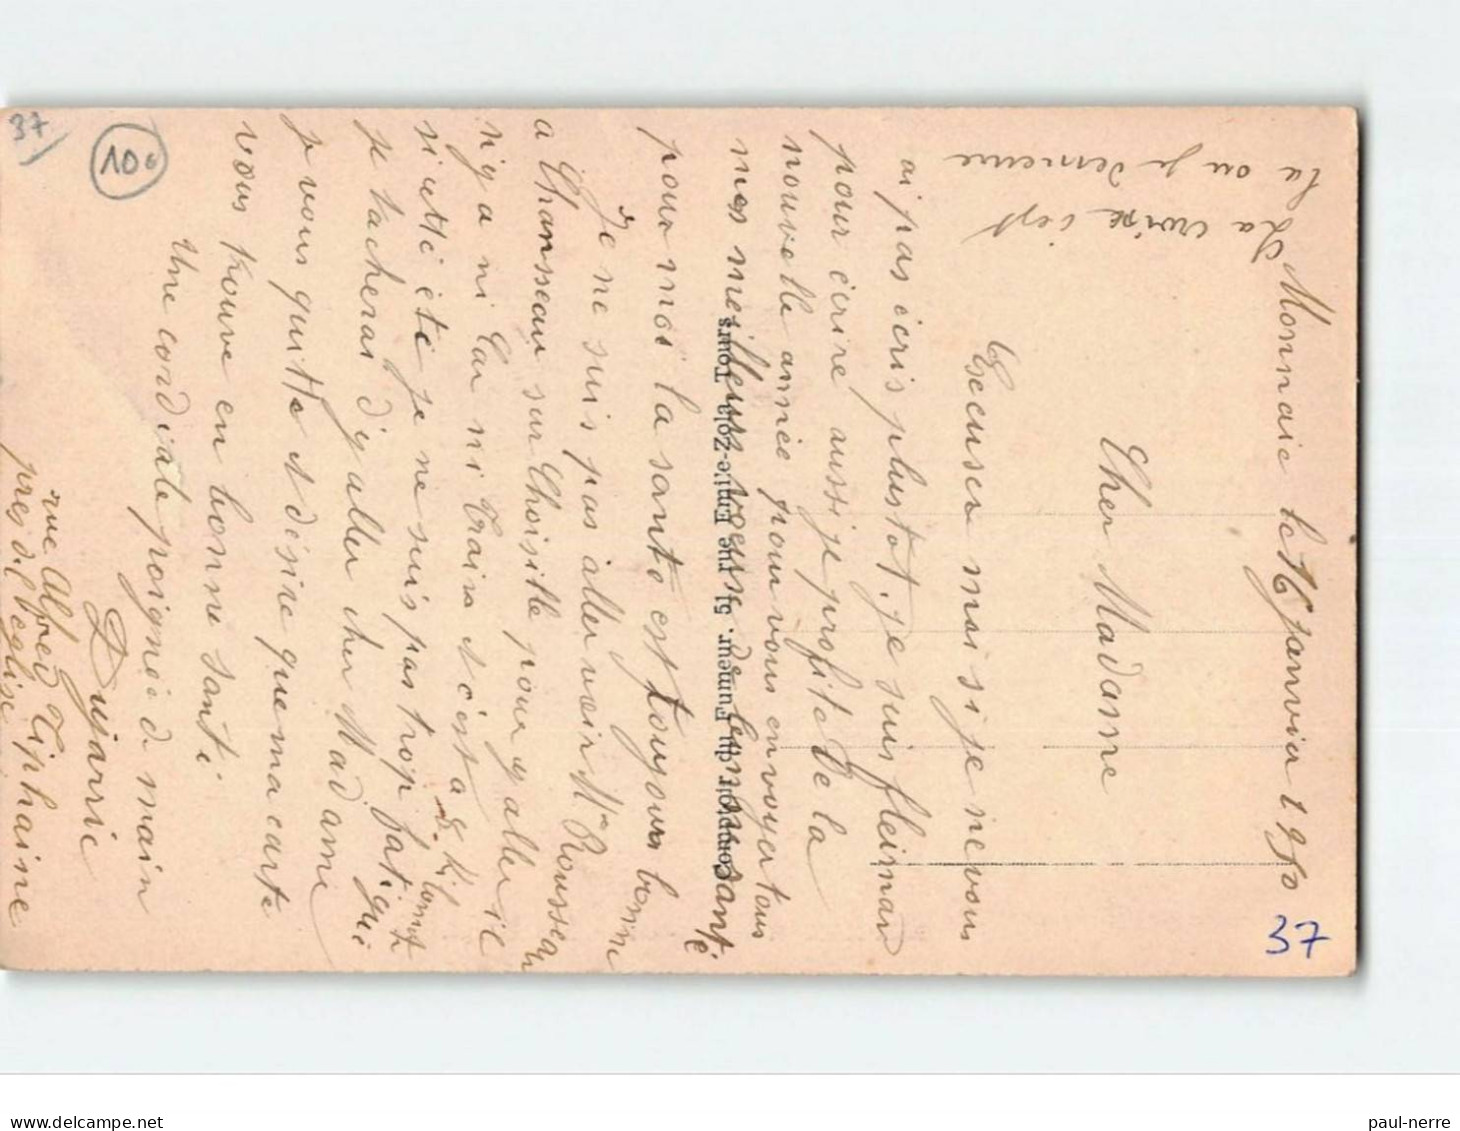 Monnaie le 16 janvier 1950
La croix c'est
la ou je demeure
Cher Madame
Escuser moi si je ne vous
ai pas écris plustot. je suis fleimard
pour écrire aussi je profite de la
nouvelle année pour vous envoyer tous
mes meilleurs voeux de bonne santé
pour moi la santé est toujours bonne
Je ne suis pas aller voir Mme Rousseau
a Chanseau sur Choisille pour y aller il
n'y a ni Car ni train et c'est a 8 kilomet
si cette été je ne suis pas trop fatigué
je tacherai d'y aller cher Madame
je vous quitte et désire que ma carte
vous trouve en bonne santé
Une cordiale poignée de main
Dujarrie
rue Alfred Tiphaine
pres de l'église
Comptoir du Fumeur, 5, rue Emile-Zola, Tours
37
100
37
delcampe.net
paul-nerre